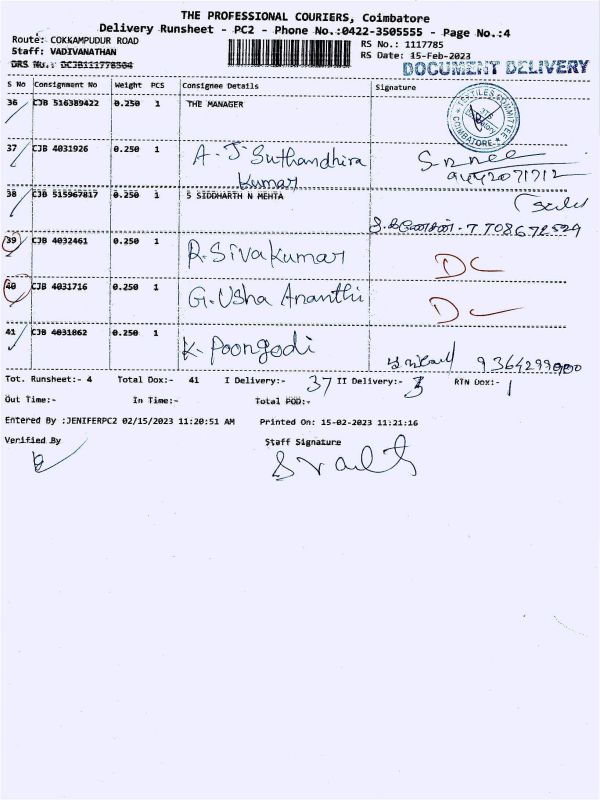 THE PROFESSIONAL COURIERS, Coimbatore
Delivery Runsheet - PC2 - Phone No.:0422-3505555 - Page No.:4
Route: COKKAMPUDUR ROAD
Staff: VADIVANATHAN
DRS No.: DCJB111778504
RS No.: 1117785
RS Date: 15-Feb-2023
DOCUMENT DELIVERY
S No Consignment No Weight PCS Consignee Details Signature
36 CJB 516389422 0.250 1 THE MANAGER
TEXTILES COMMITTEE
COIMBATORE
37 CJB 4031926 0.250 1 A. J Suthandhira
Kumar
9442071712
38 CJB 515967817 0.250 1 S SIDDHARTH N MEHTA
39 CJB 4032461 0.250 1 R. Sivakumar DC
40 CJB 4031716 0.250 1 G. Usha Ananthi DC
41 CJB 4031862 0.250 1 K. Poongodi
Tot. Runsheet:- 4 Total Dox:- 41 I Delivery:- 37 II Delivery:- 3 RTN Dox:- 1
Out Time:- In Time:- Total POD:-
Entered By :JENIFERPC2 02/15/2023 11:20:51 AM Printed On: 15-02-2023 11:21:16
Verified By Staff Signature